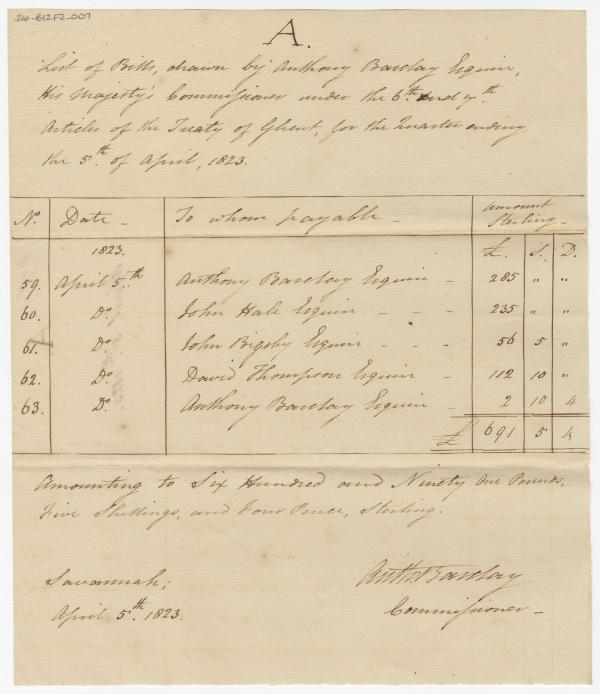 26-B12F2-007
A.
List of Bills, drawn by Anthony Barclay Esquire,
His Majesty's Commissioner under the 6th. and 7th.
Articles of the Treaty of Ghent, for the Quarter ending
the 5th. of April, 1823.
No. Date - To whom payable - Amount Sterling -
1823. £. S. D.
59. April 5.th Anthony Barclay Esquire - 285 " "
60. Do. John Hale Esquire - - - 235 " "
61. Do. John Bigsby Esquire - - - 56 5 "
62. Do. David Thompson Esquire - 112 10 "
63. Do. Anthony Barclay Esquire - 2 10 4
£ 691 5 4
Amounting to Six Hundred and Ninety One Pounds,
Five Shillings, and Four Pence, Sterling.
Savannah;
April 5th. 1823.
Anth. Barclay
Commissioner -